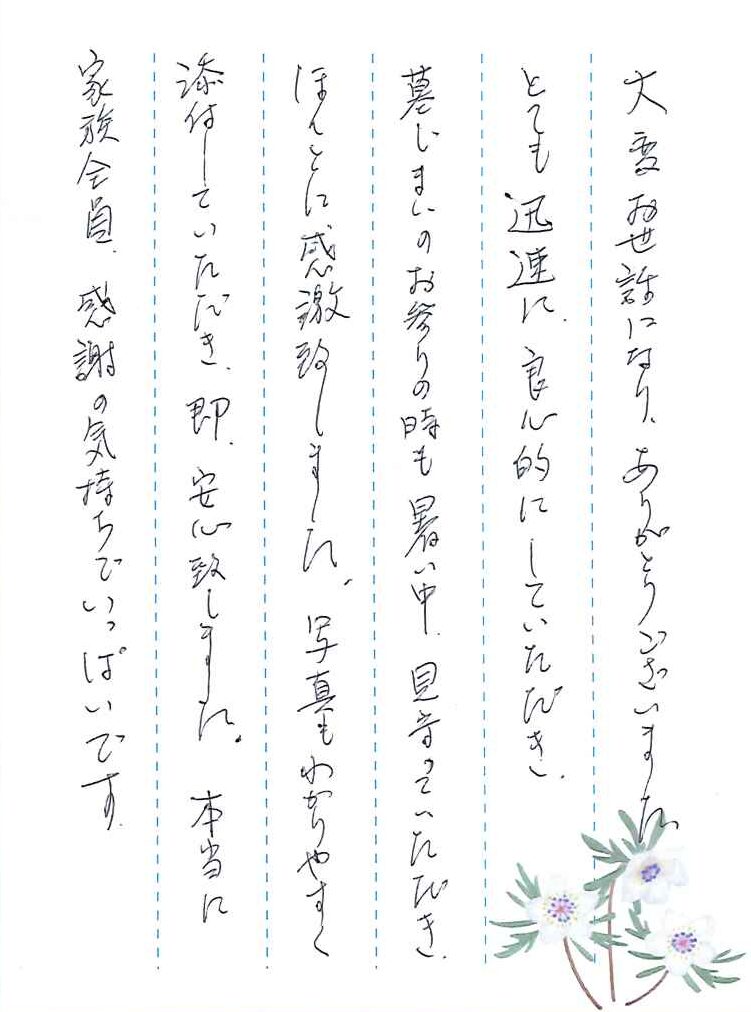 大変お世話になり、ありがとうございました。
とても迅速に、良心的にしていただき、
墓じまいのお参りの時も暑い中、見守っていただき、
ほんとに感激致しました。写真もわかりやすく
添付していただき、即、安心致しました。本当に
家族全員、感謝の気持ちでいっぱいです。